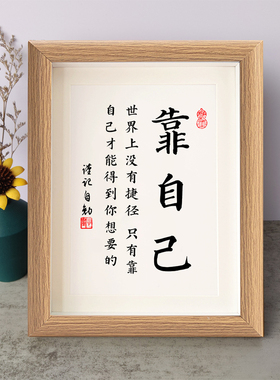 靠自己
世界上没有捷径 只有靠
自己才能得到你想要的
谨记自勉